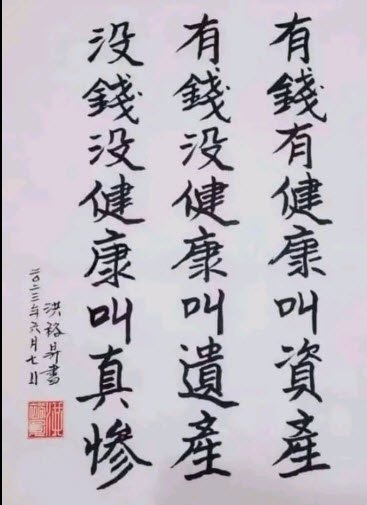 有錢有健康叫資產
有錢没健康叫遺產
没錢没健康叫真慘
二〇二三年六月七日
洪裕昇書